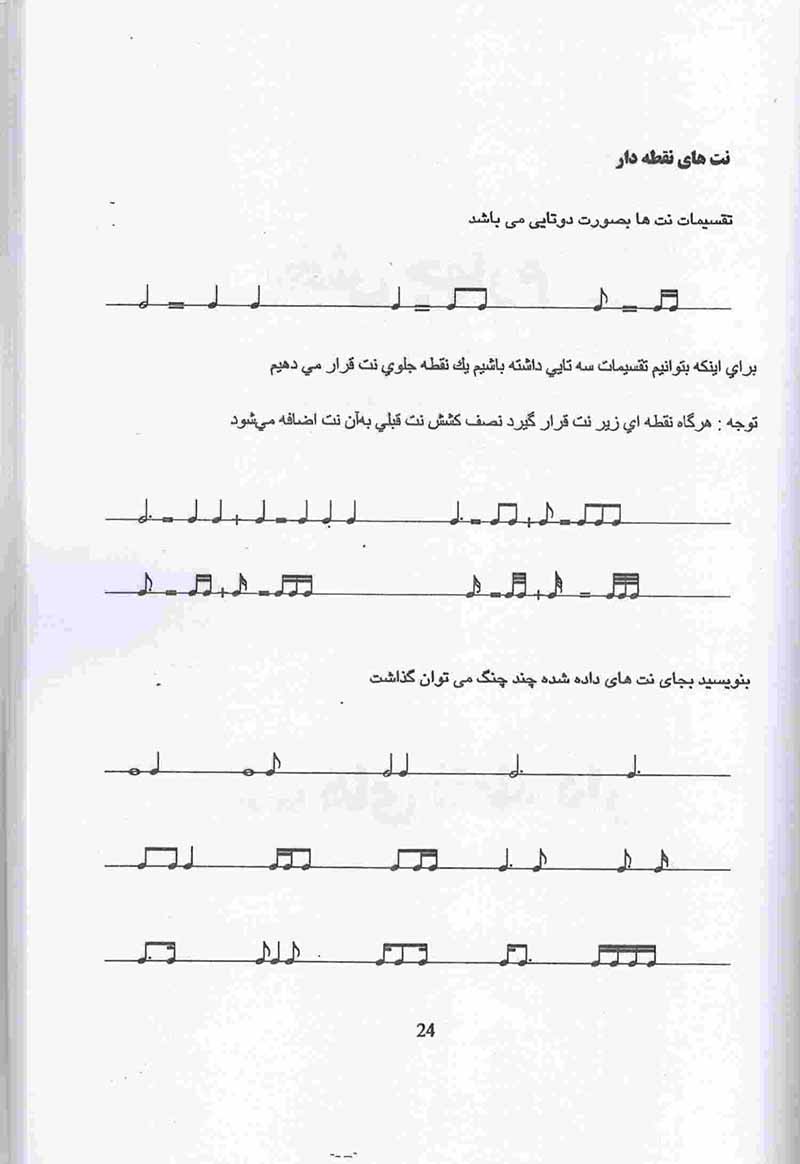 نت های نقطه دار
تقسیمات نت ها بصورت دوتایی می باشد
براي اينكه بتوانيم تقسيمات سه تايي داشته باشيم يك نقطه جلوي نت قرار مي دهيم
توجه : هرگاه نقطه اي زير نت قرار گيرد نصف كشش نت قبلي به‌آن نت اضافه مي‌شود
بنویسید بجای نت های داده شده چند چنگ می توان گذاشت
24